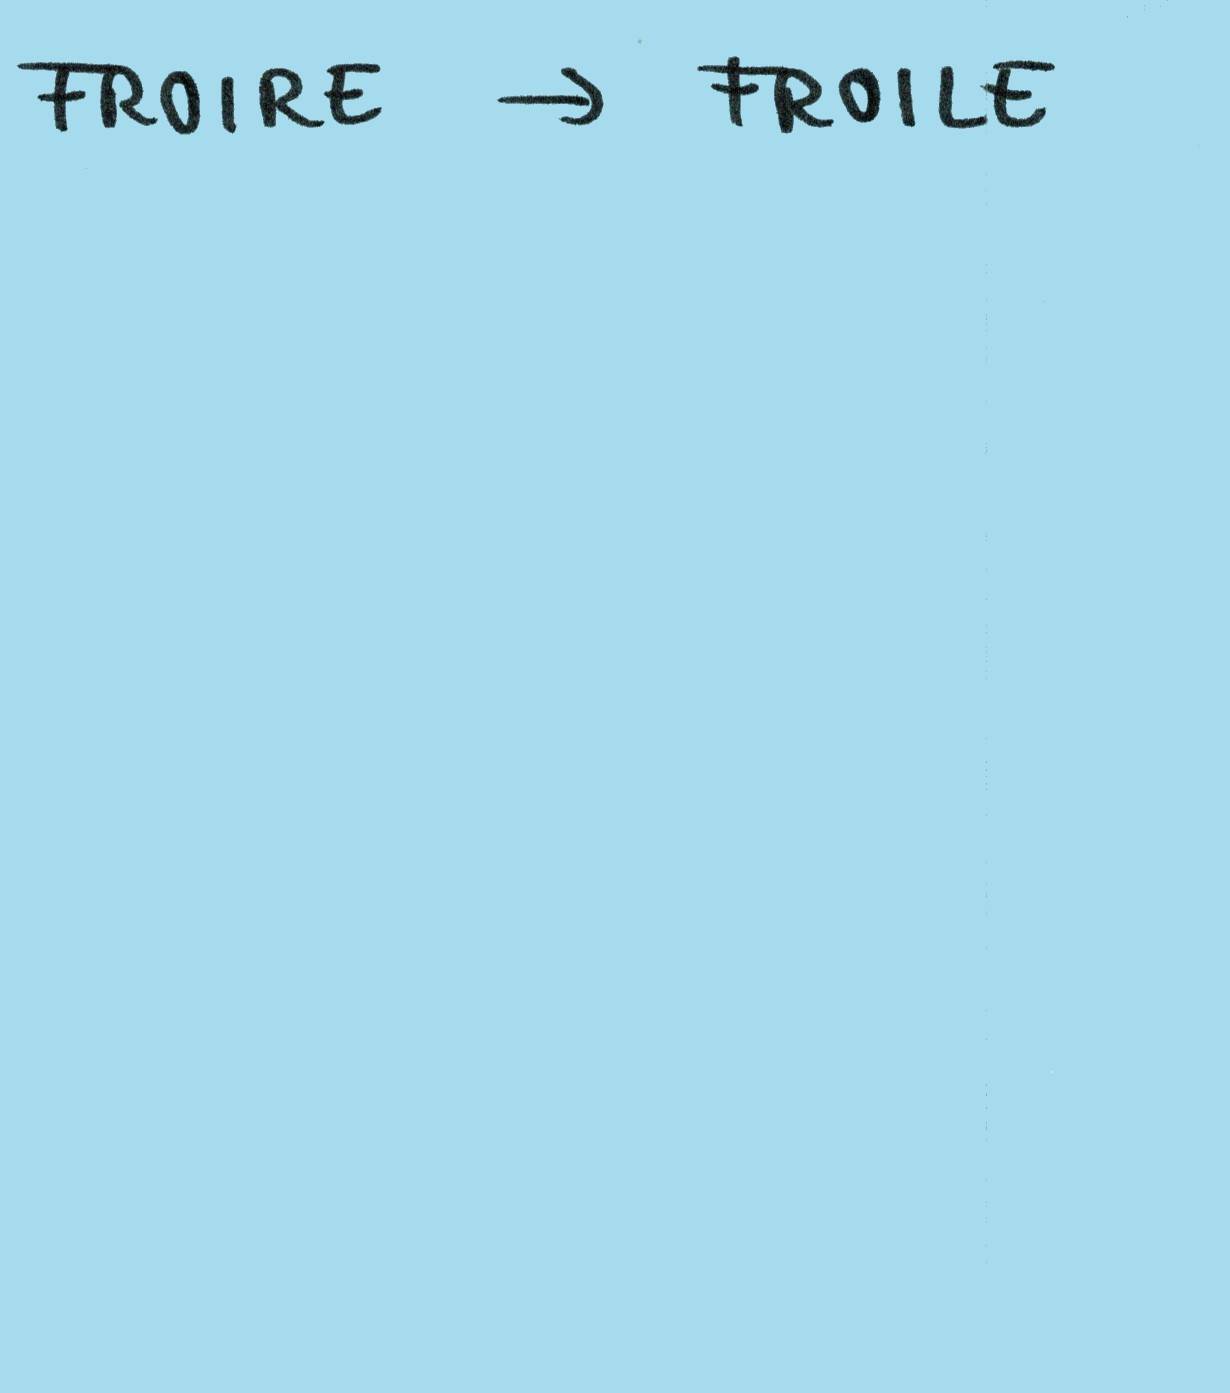 FROIRE → FROILE